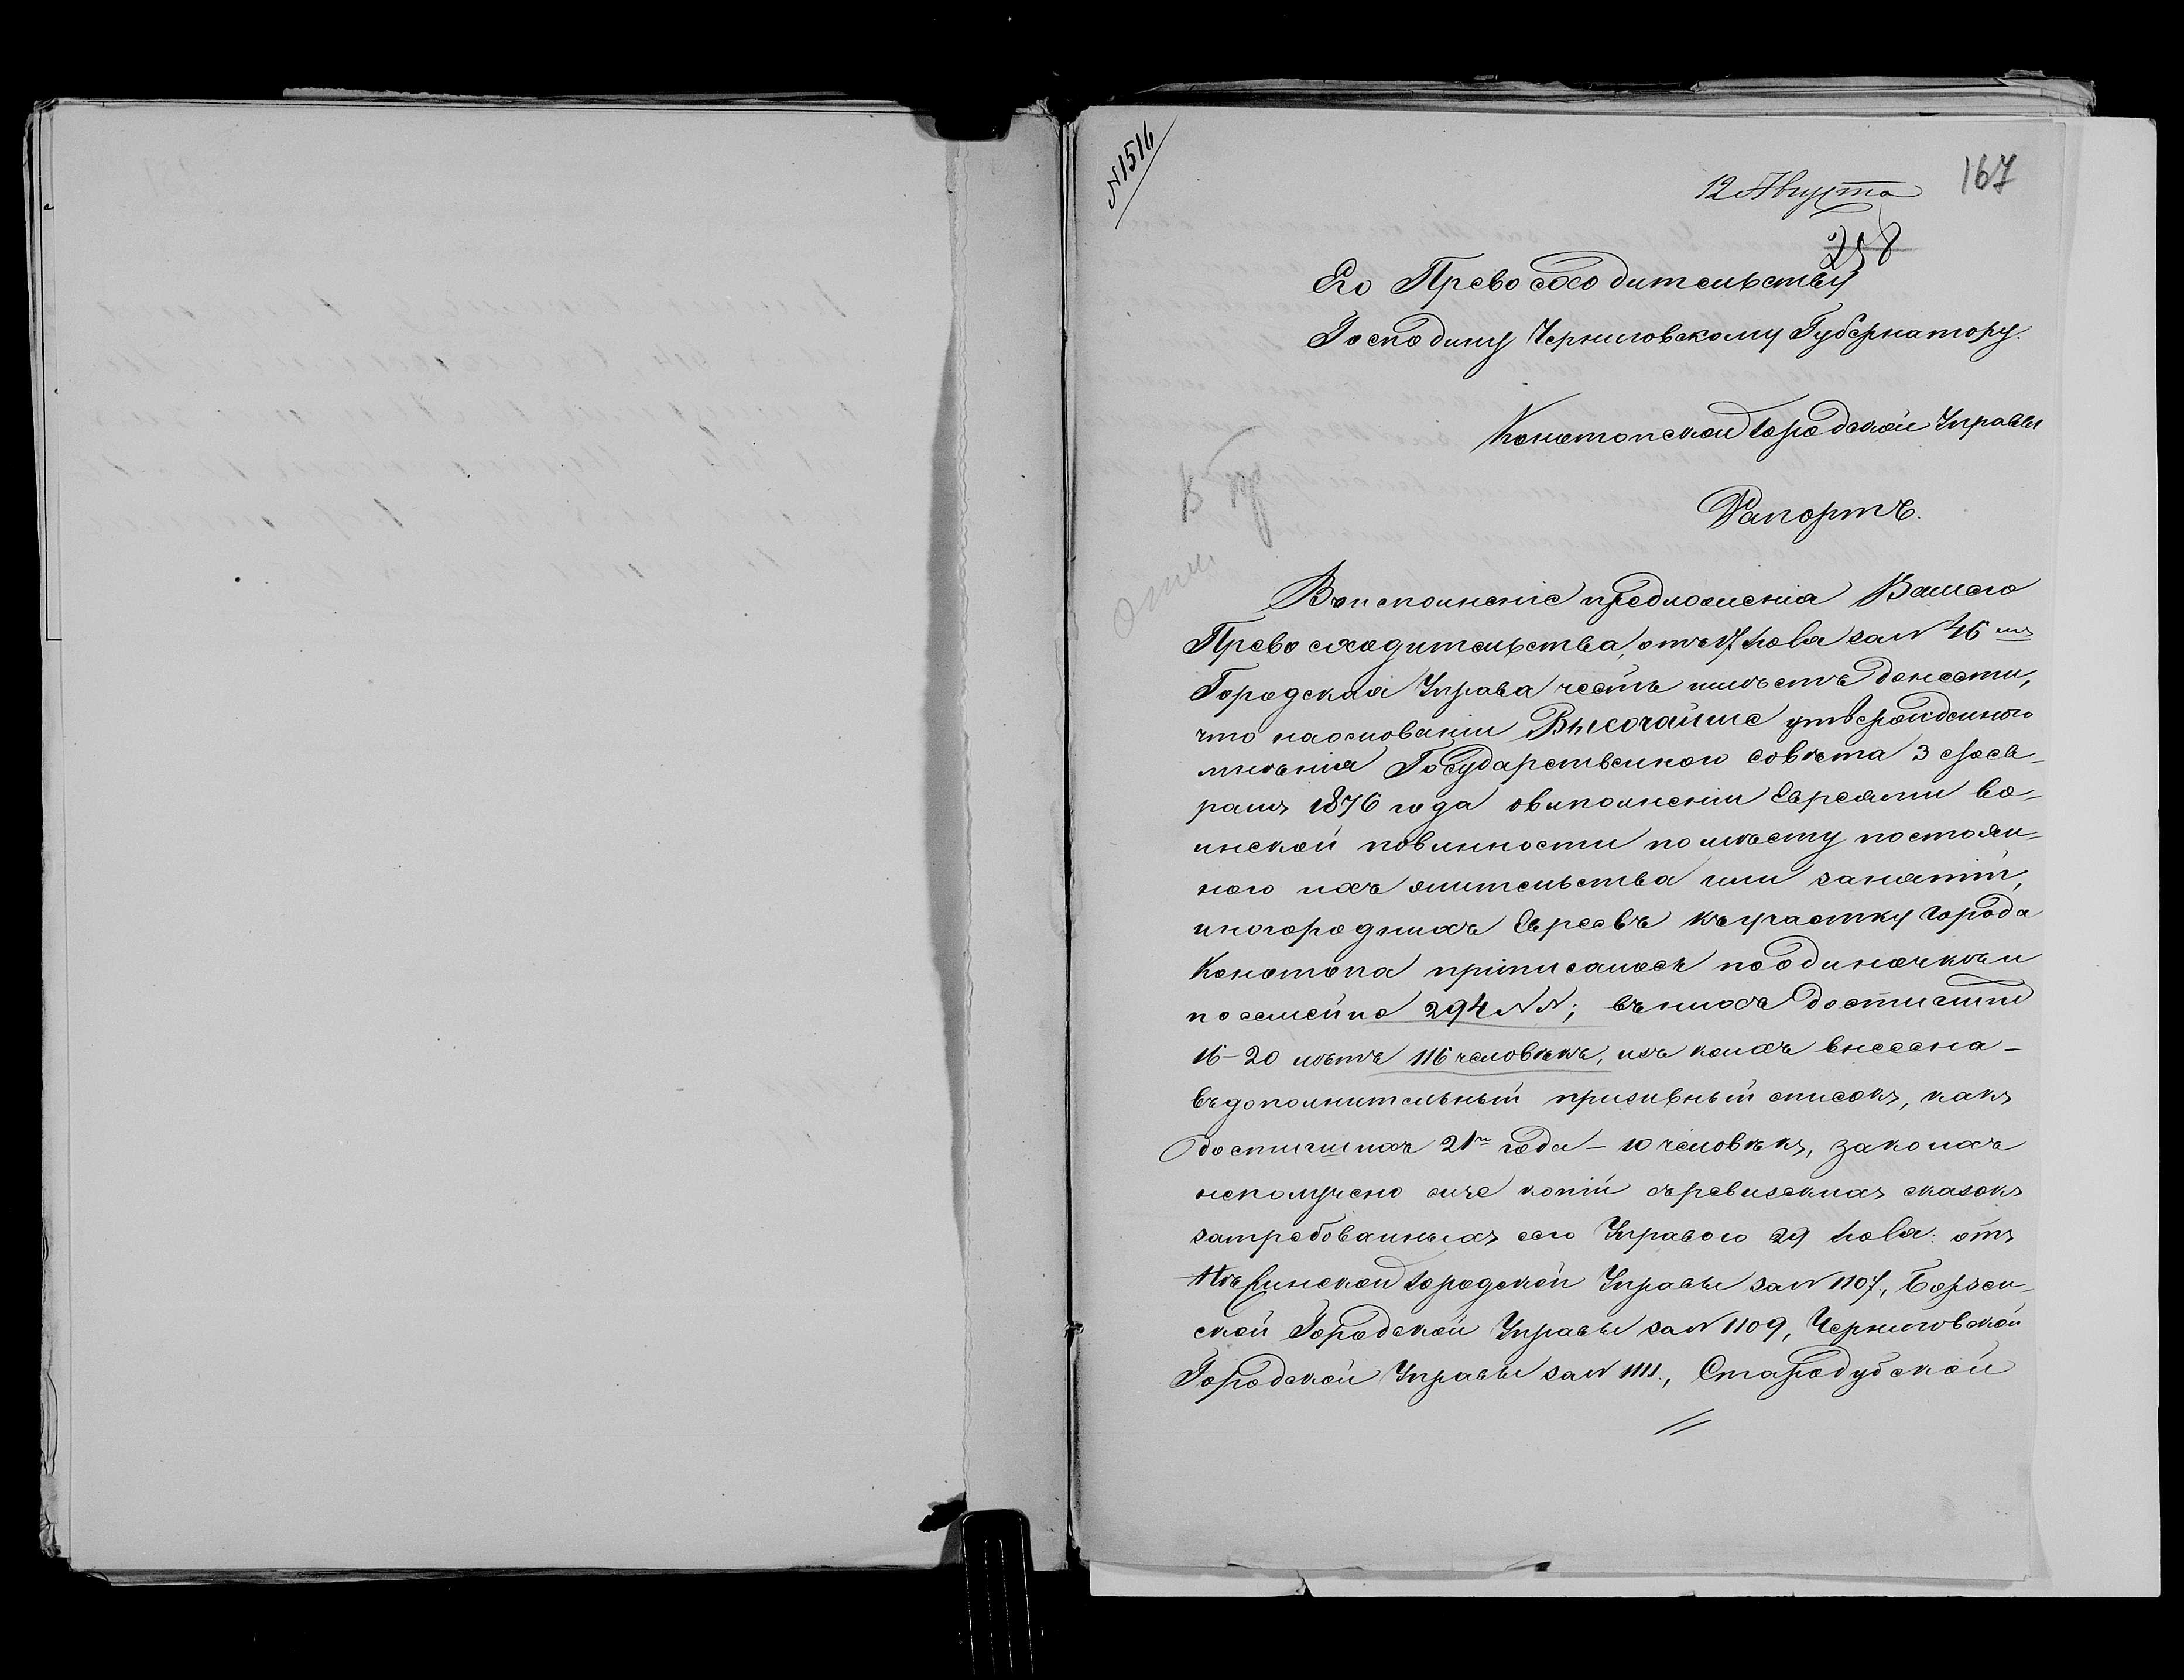 N 1516
12 Августа
167
258
Его Превосходительству
Господину Черниговскому Губернатору.
Конотопской Городской Управы
Рапортъ.
Во исполненіе предложенія Вашего
Превосходительства, отъ 17 Іюля за N 46мъ
Городская Управа честь имѣетъ донести,
что на основаніи Высочайше утвержденного
мнѣнія Государственного совѣта 3 Февра-
ля 1876 года о выполненіи Евреями во-
инской повинности по мѣсту постоян-
ного ихъ жительства или занятій,
иногородныхъ Евреевъ къ участку города
Конотопа приписалось по одиночкѣ и
посемейно 294 NN; въ нихъ достигшихъ
16-20 лѣтъ 116 человѣкъ, изъ коихъ внесена-
въ дополнительный призывный списокъ, какъ
достигшихъ 21го года - 10 человѣкъ, за коихъ
неполучено еще копій съ ревизскихъ сказокъ
затребованныхъ сею Управою 29 Іюля: отъ
Нѣжинской Городской Управы за N 1107, Борзен-
ской Городской Управы за N 1109, Черниговской
Городской Управы за N 1111, Стародубской